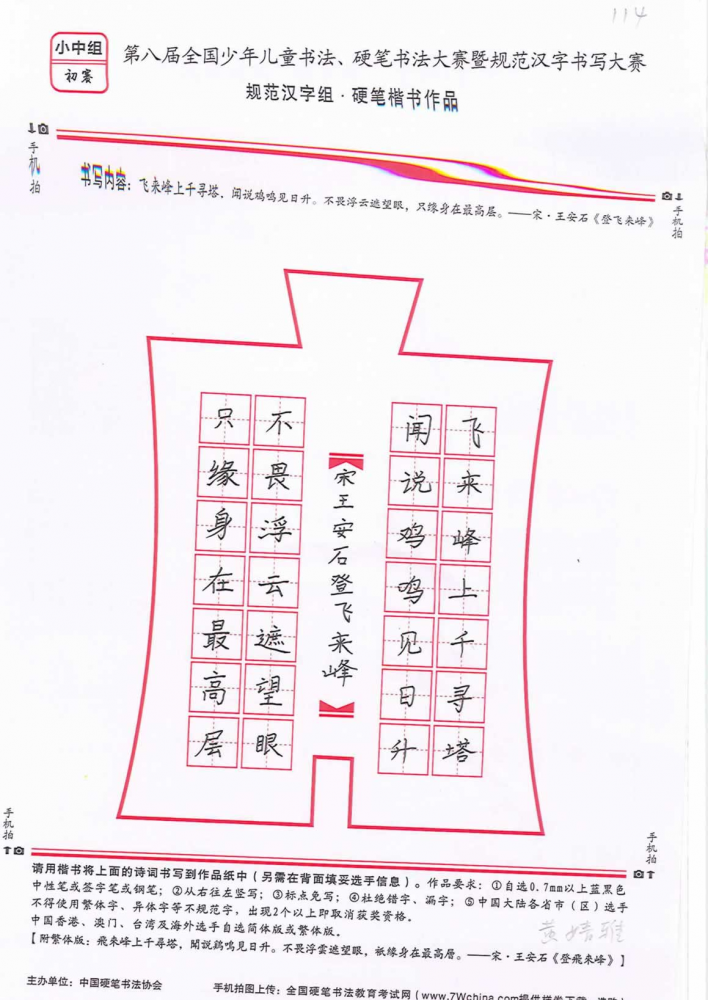 114
小中组
初赛
第八届全国少年儿童书法、硬笔书法大赛暨规范汉字书写大赛
规范汉字组·硬笔楷书作品
手机拍
手机拍
书写内容：飞来峰上千寻塔，闻说鸡鸣见日升。不畏浮云遮望眼，只缘身在最高层。——宋·王安石《登飞来峰》
飞来峰上千寻塔
闻说鸡鸣见日升
宋王安石登飞来峰
不畏浮云遮望眼
只缘身在最高层
手机拍
手机拍
请用楷书将上面的诗词书写到作品纸中（另需在背面填妥选手信息）。作品要求：①自选0.7mm以上蓝黑色
中性笔或签字笔或钢笔；②从右往左竖写；③标点免写；④杜绝错字、漏字；⑤中国大陆各省市（区）选手
不得使用繁体字、异体字等不规范字，出现2个以上即取消获奖资格。
中国香港、澳门、台湾及海外选手自选简体版或繁体版。
【附繁体版：飛來峰上千尋塔，聞說鷄鳴見日升。不畏浮雲遮望眼，衹緣身在最高層。——宋·王安石《登飛來峰》】
黄婧雅
主办单位：中国硬笔书法协会
手机拍图上传：全国硬笔书法教育考试网（www.7Wchina.com提供样卷下载